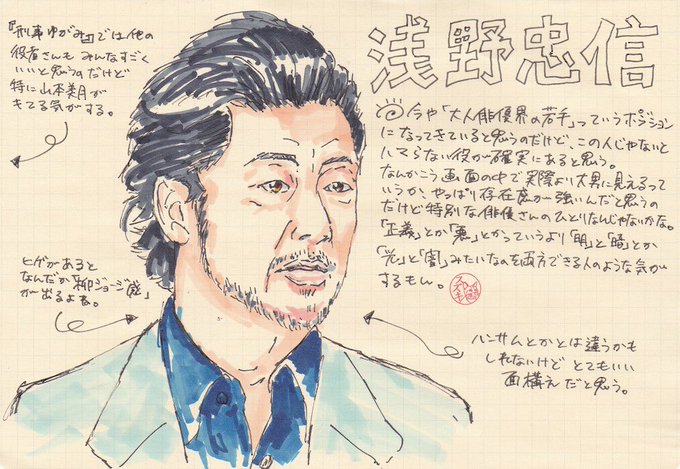 『刑事ゆがみ』では他の
役者さんもみんなすごく
いいと思うのだけど
特に山本美月が
キてる気がする。
浅野忠信
今や「大人俳優界の若手」っていうポジション
になってきていると思うのだけど、この人じゃないと
ハマらない役が確実にあると思う。
なんかこう画面の中で実際より大男に見えるって
いうか、やっぱり存在感が強いんだと思うの
だけど特別な俳優さんのひとりなんじゃないかな。
「正義」とか「悪」とかっていうより「明」と「暗」とか
「光」と「闇」みたいなのを両方できる人のような気が
するもん。
ヒゲがあると
なんだか「柳ジョージ感」
が出るよね。
ハンサムとかとは違うかも
しれないけど とてもいい
面構えだと思う。